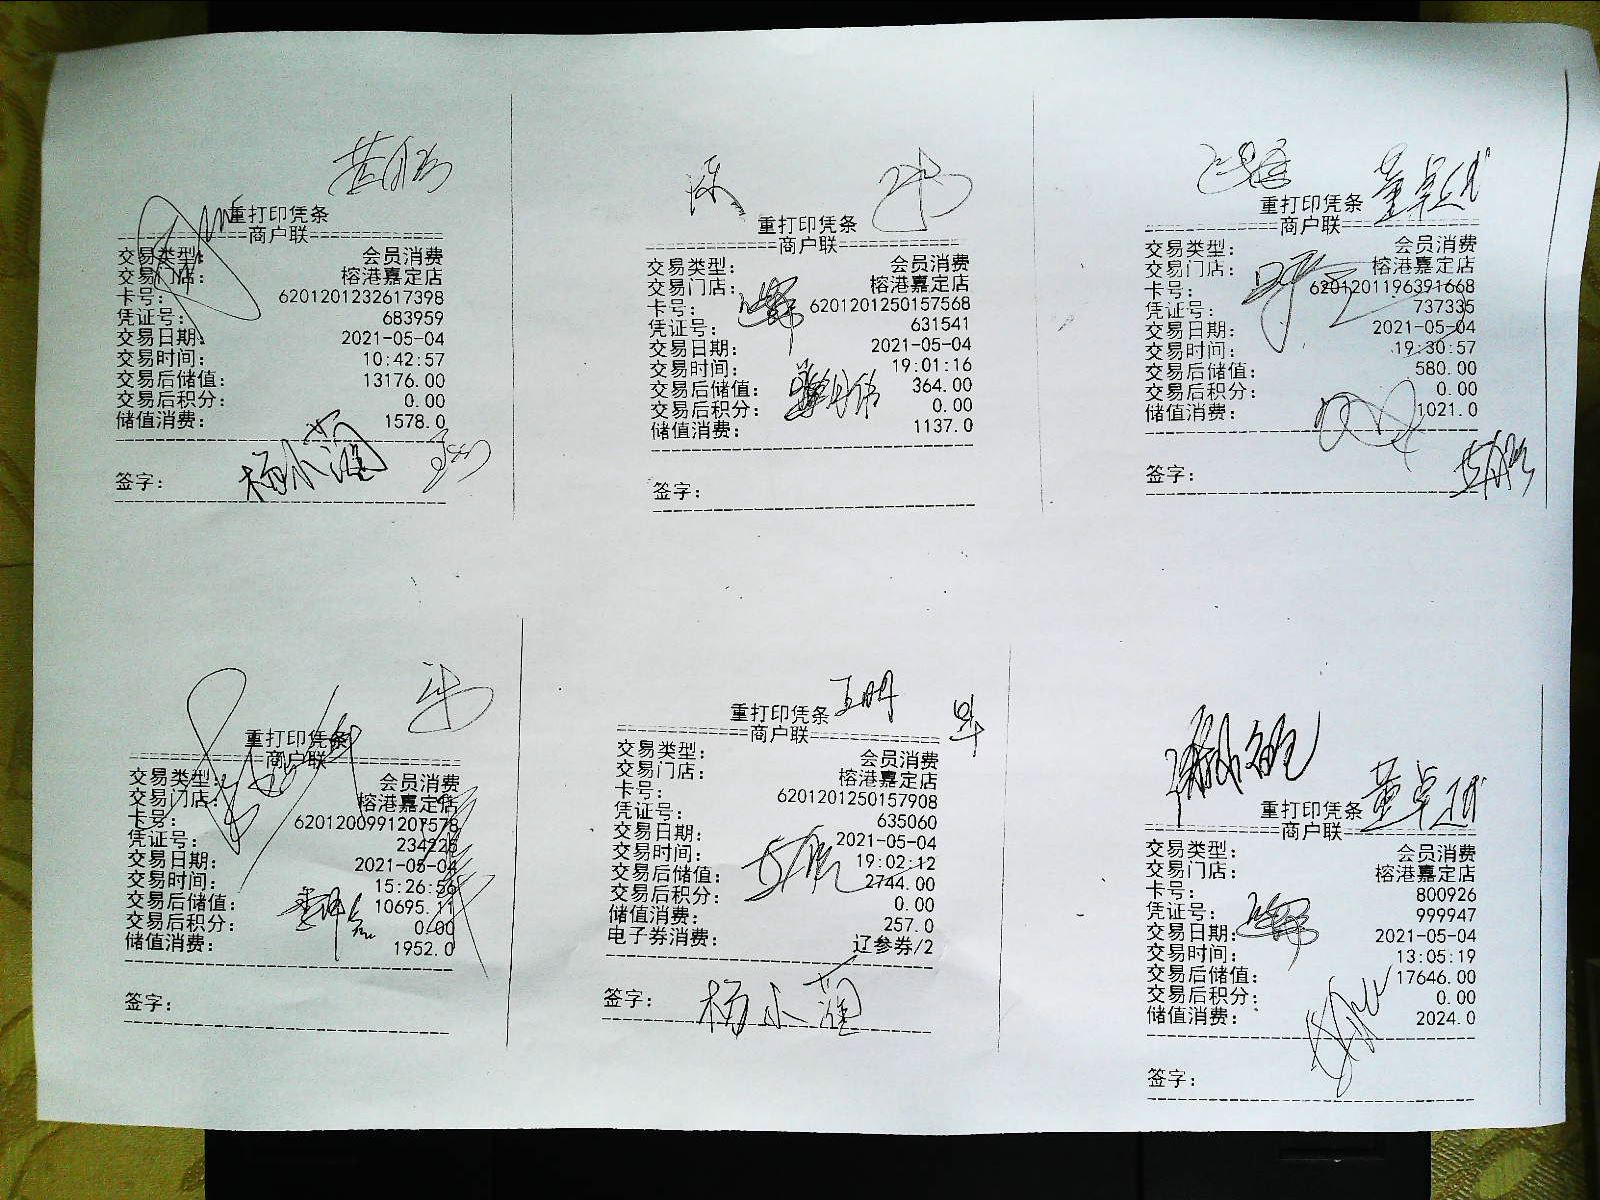 重打印凭条
商户联
交易类型: 会员消费
交易门店: 榕港嘉定店
卡号: 6201201232617398
凭证号: 683959
交易日期: 2021-05-04
交易时间: 10:42:57
交易后储值: 13176.00
交易后积分: 0.00
储值消费: 1578.0
签字: 杨小菡
重打印凭条
商户联
交易类型: 会员消费
交易门店: 榕港嘉定店
卡号: 6201201250157568
凭证号: 631541
交易日期: 2021-05-04
交易时间: 19:01:16
交易后储值: 364.00
交易后积分: 0.00
储值消费: 1137.0
签字:
重打印凭条
商户联
交易类型: 会员消费
交易门店: 榕港嘉定店
卡号: 6201201196391668
凭证号: 737335
交易日期: 2021-05-04
交易时间: 19:30:57
交易后储值: 580.00
交易后积分: 0.00
储值消费: 1021.0
签字:
重打印凭条
商户联
交易类型: 会员消费
交易门店: 榕港嘉定店
卡号: 6201200991207578
凭证号: 234225
交易日期: 2021-05-04
交易时间: 15:26:56
交易后储值: 10695.11
交易后积分: 0.00
储值消费: 1952.0
签字:
重打印凭条
商户联
交易类型: 会员消费
交易门店: 榕港嘉定店
卡号: 6201201250157908
凭证号: 635060
交易日期: 2021-05-04
交易时间: 19:02:12
交易后储值: 2744.00
交易后积分: 0.00
储值消费: 257.0
电子券消费: 辽参券/2
签字: 杨小菡
重打印凭条
商户联
交易类型: 会员消费
交易门店: 榕港嘉定店
卡号: 800926
凭证号: 999947
交易日期: 2021-05-04
交易时间: 13:05:19
交易后储值: 17646.00
交易后积分: 0.00
储值消费: 2024.0
签字: